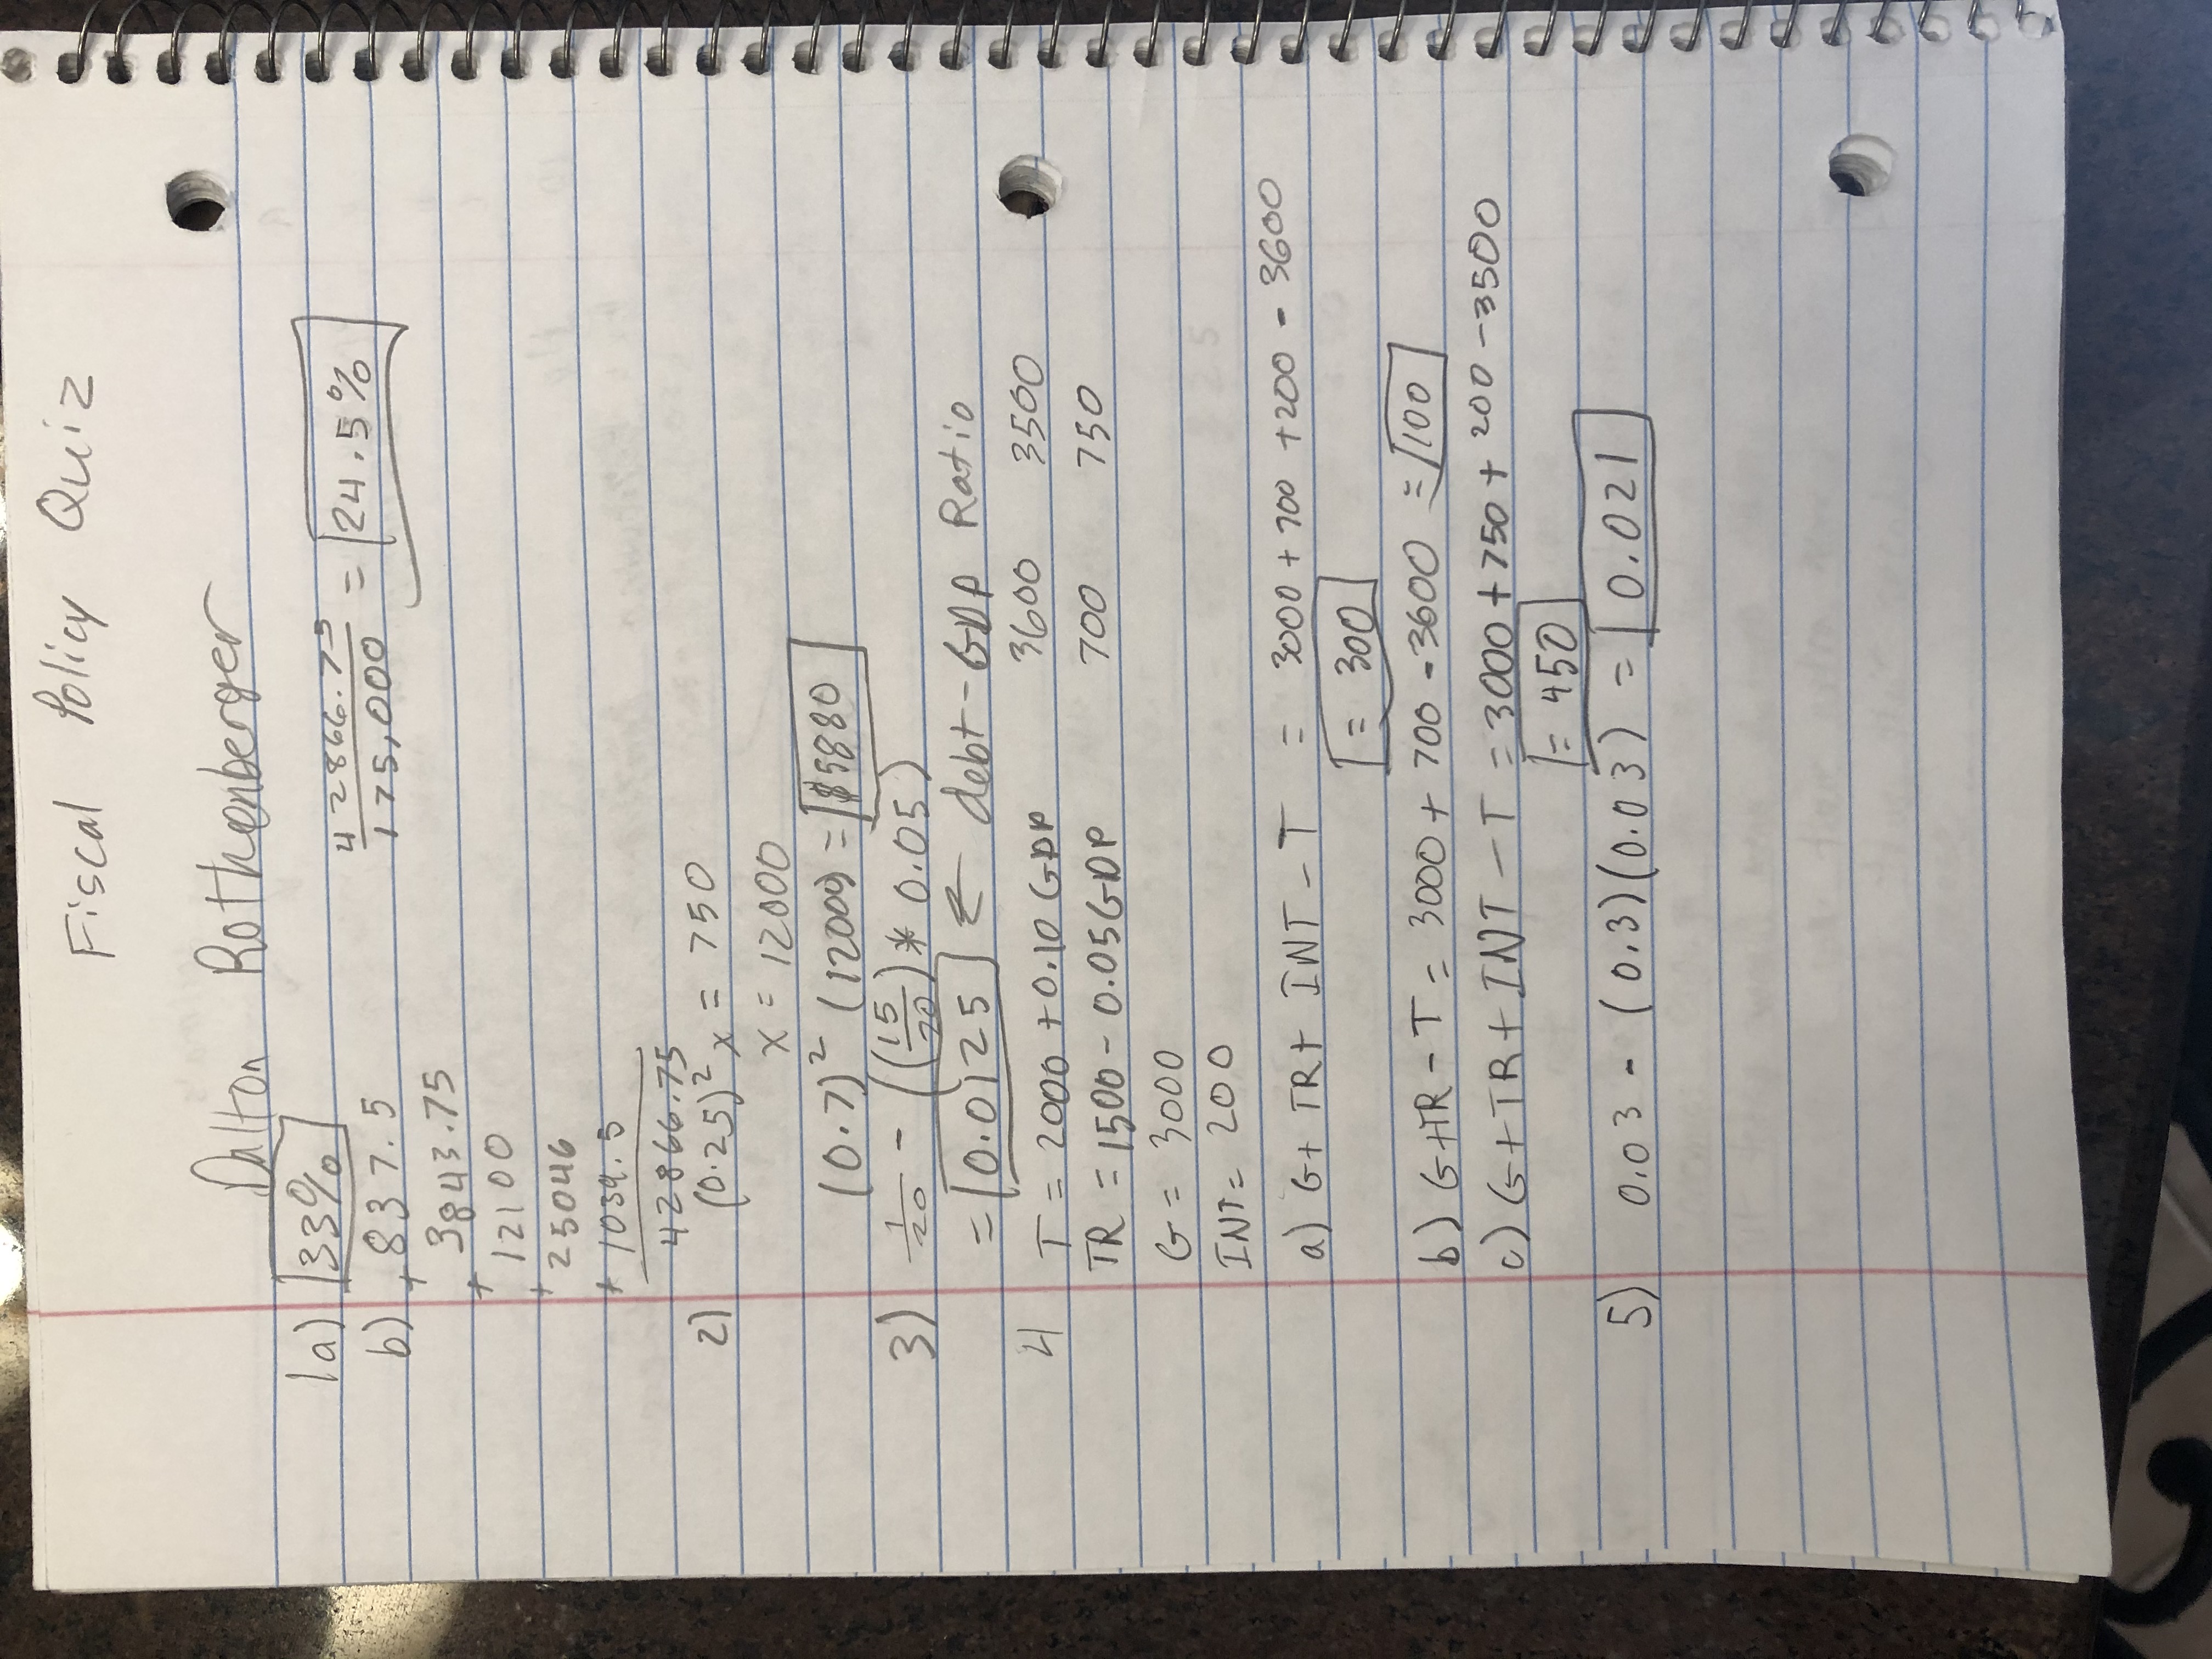 Fiscal Policy Quiz
Dalton Rothenberger
1a) 33%
b) 837.5
+ 3843.75
+ 12100
+ 25046
+ 1039.5
42866.75
42866.75 / 175,000 = 24.5%
2) (0.25)² x = 750
x = 12000
(0.7)² (12000) = $5880
3) 1/20 - ((15/20) * 0.05)
= 0.0125 ← debt-GDP Ratio
4 T = 2000 + 0.10 GDP 3600 3500
TR = 1500 - 0.05GDP 700 750
G = 3000
INT = 200
a) G + TR + INT - T = 3000 + 700 + 200 - 3600
= 300
b) G+TR - T = 3000 + 700 - 3600 = 100
c) G + TR + INT - T = 3000 + 750 + 200 - 3500
= 450
5) 0.03 - (0.3)(0.03) = 0.021